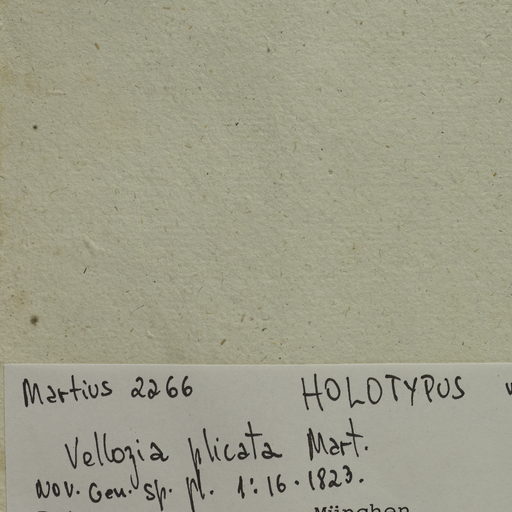 Martius 2266 HOLOTYPUS
Vellozia plicata Mart.
Nov. Gen. sp. pl. 1:16.1823.
München